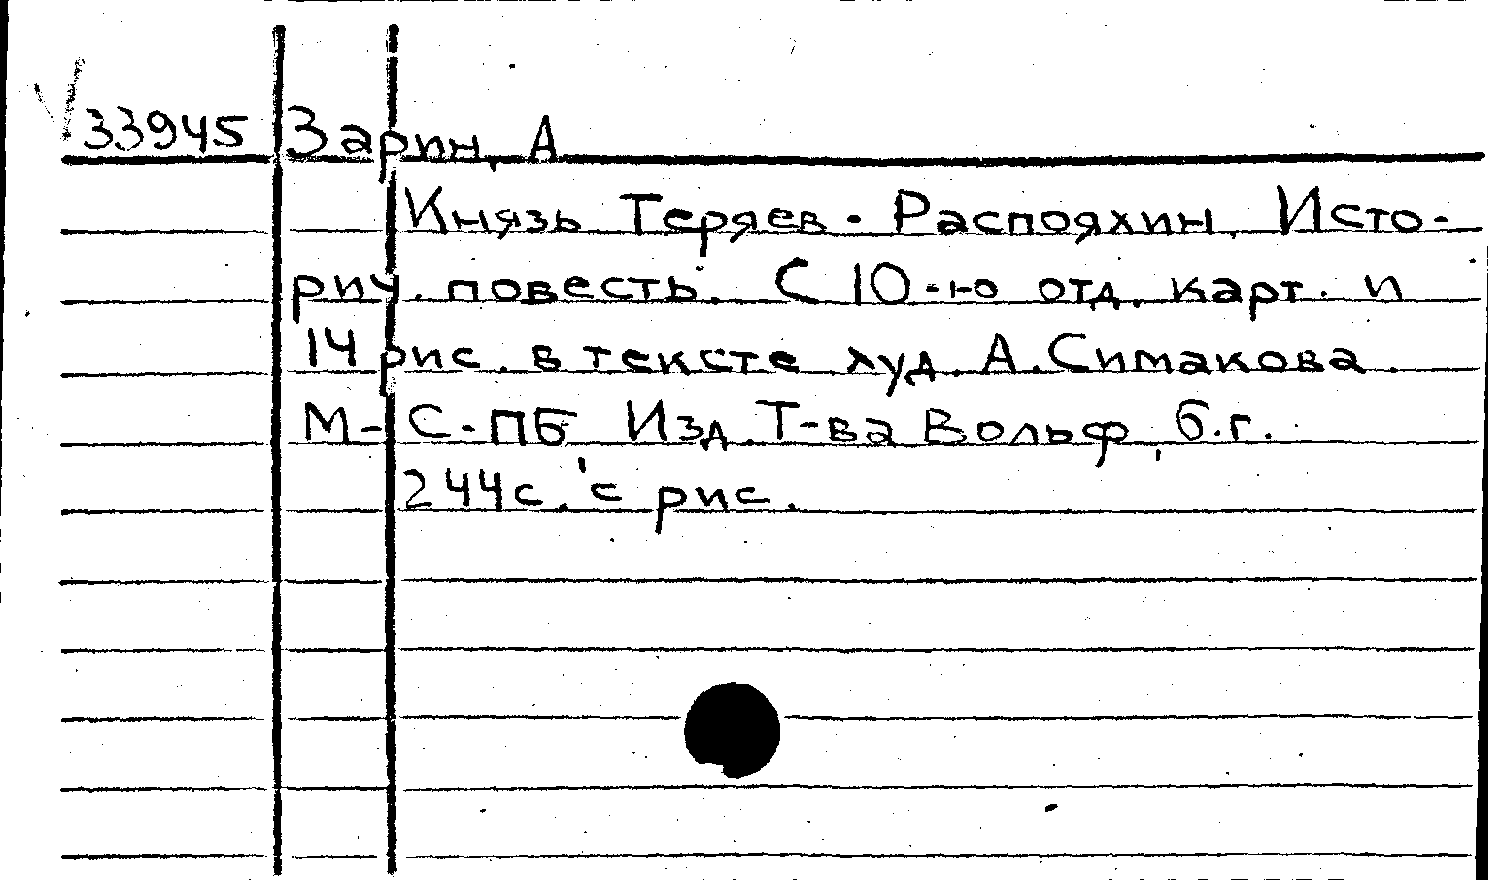 33945 Зарин, А
Князь Теряев-Распояхин. Исто-
рич. повесть. С 10-ю отд. карт. и
14 рис. в тексте худ. А. Симакова.
М-С-ПБ Изд. Т-ва Вольф, б.г.
244с. с рис.